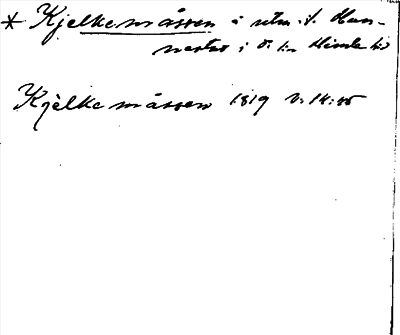 * Kjelkemåssen i utm. t. Hun-
nestad i Ö. t:n Himle hd
Kjelkemåssen 1819 v. 14: